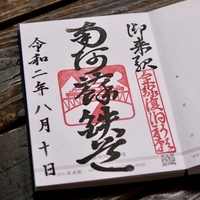 御来駅
南阿蘇鉄道
令和二年八月十日